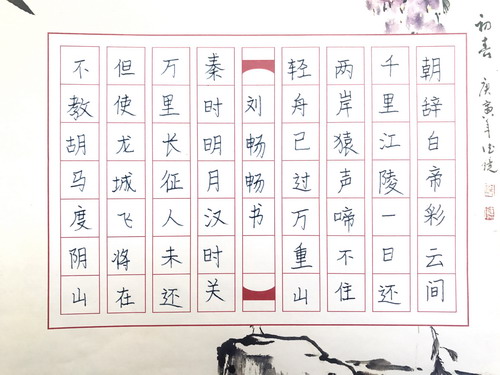 朝辞白帝彩云间
千里江陵一日还
两岸猿声啼不住
轻舟已过万重山
刘畅畅书
秦时明月汉时关
万里长征人未还
但使龙城飞将在
不教胡马度阴山
初春 庚寅年